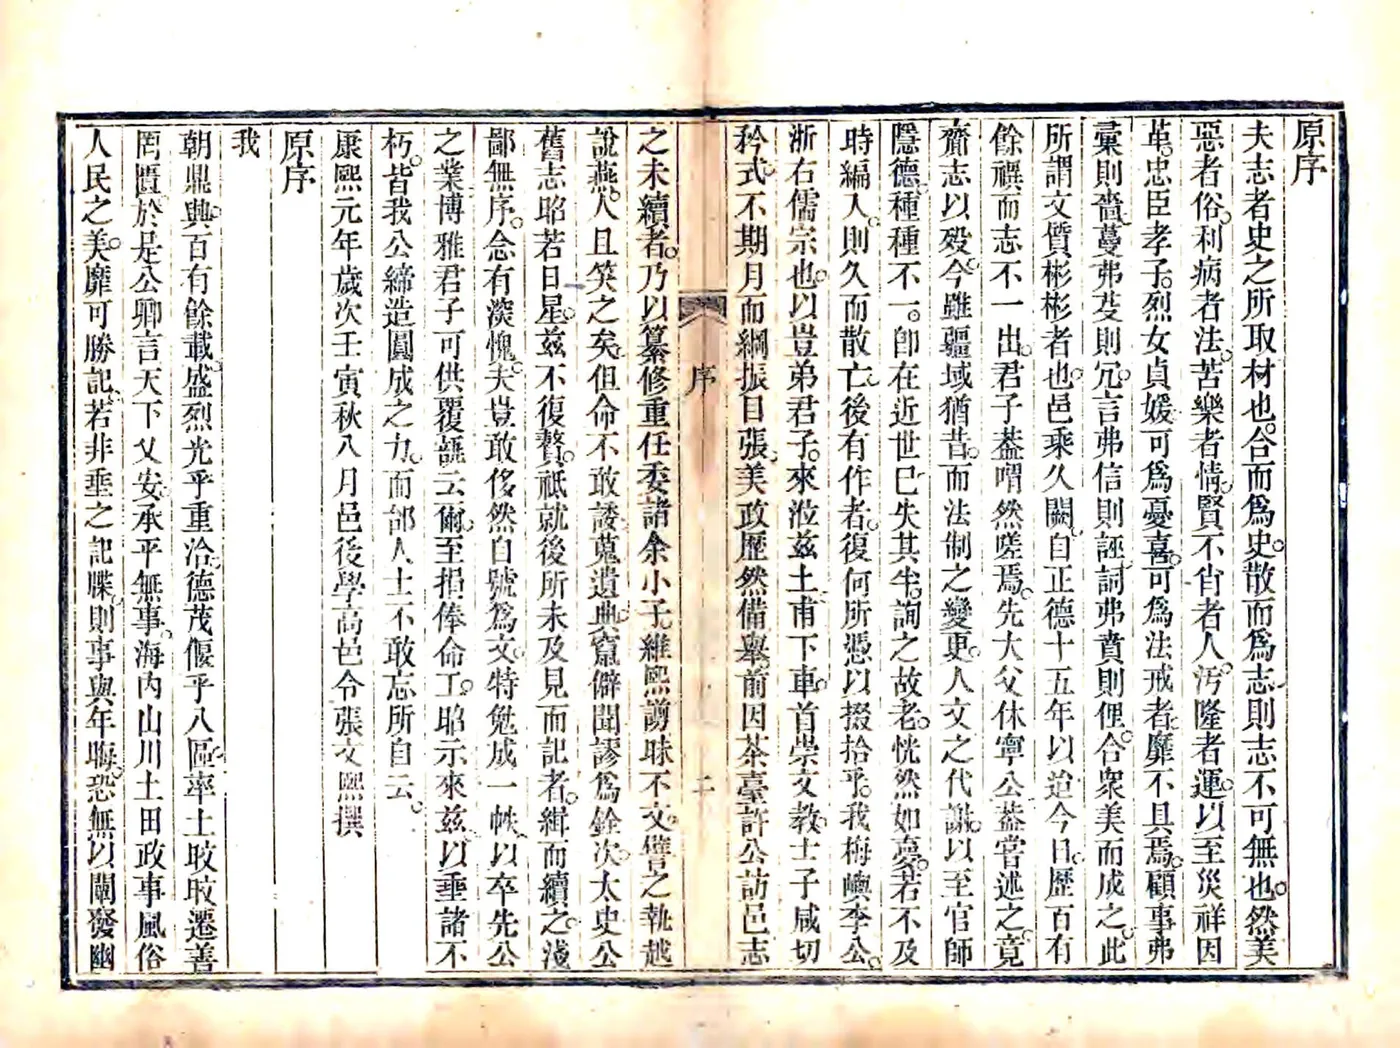 原序
夫志者史之所取材也合而爲史散而爲志則志不可無也然美
惡者俗利病者法苦樂者情賢不肖者人汚隆者運以至災祥因
革忠臣孝子烈女貞媛可爲憂喜可爲法戒者靡不具焉顧事弗
彙則嗇蔓弗芟則冗言弗信則誣詞弗賁則俚合衆美而成之此
所謂文質彬彬者也邑乘久闕自正德十五年以迨今日歷百有
餘禩而志不一出君子葢喟然嗟焉先大父休寧公葢嘗述之竟
齎志以殁今雖疆域猶昔而法制之變更人文之代謝以至官師
隱德種種不一卽在近世已失其半詢之故老恍然如夢若不及
時編入則久而散亡後有作者復何所憑以掇拾乎我梅嶼李公
浙右儒宗也以豈弟君子來涖兹土甫下車首崇文教士子咸切
矜式不期月而綱振目張美政歷然備舉前因茶臺許公訪邑志
序
二
之未續者乃以纂修重任委諸余小子維熙謭昧不文譬之執越
說燕人且笑之矣但命不敢諉蒐遺典竄僻聞謬爲銓次太史公
舊志昭若日星兹不復贅祇就後所未及見而記者緝而續之淺
鄙無序念有深愧夫豈敢侈然自號爲文特勉成一帙以卒先公
之業博雅君子可供覆瓿云爾至捐俸命工昭示來兹以垂諸不
朽皆我公締造圓成之力而邵人士不敢忘所自云
康熙元年歲次壬寅秋八月邑後學高邑令張文熙撰
原序
我
朝鼎興百有餘載盛烈光乎重洽德茂偃乎八區率土攱攱遷善
罔匱於是公卿言天下乂安承平無事海内山川土田政事風俗
人民之美靡可勝記若非垂之記牒則事與年晦恐無以闡發幽